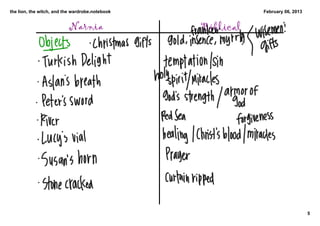 the lion, the witch, and the wardrobe.notebook
February 06, 2013
Narnia
Biblical
Objects · Christmas gifts
gold, frankincense, myrrh < wisemen's gifts
· Turkish Delight
temptation/sin
· Aslan's breath
holy spirit/miracles
· Peter's sword
god's strength / armor of god
· River
Red Sea forgiveness
· Lucy's vial
healing / Christ's blood / miracles
· Susan's horn
Prayer
· Stone cracked
Curtain ripped